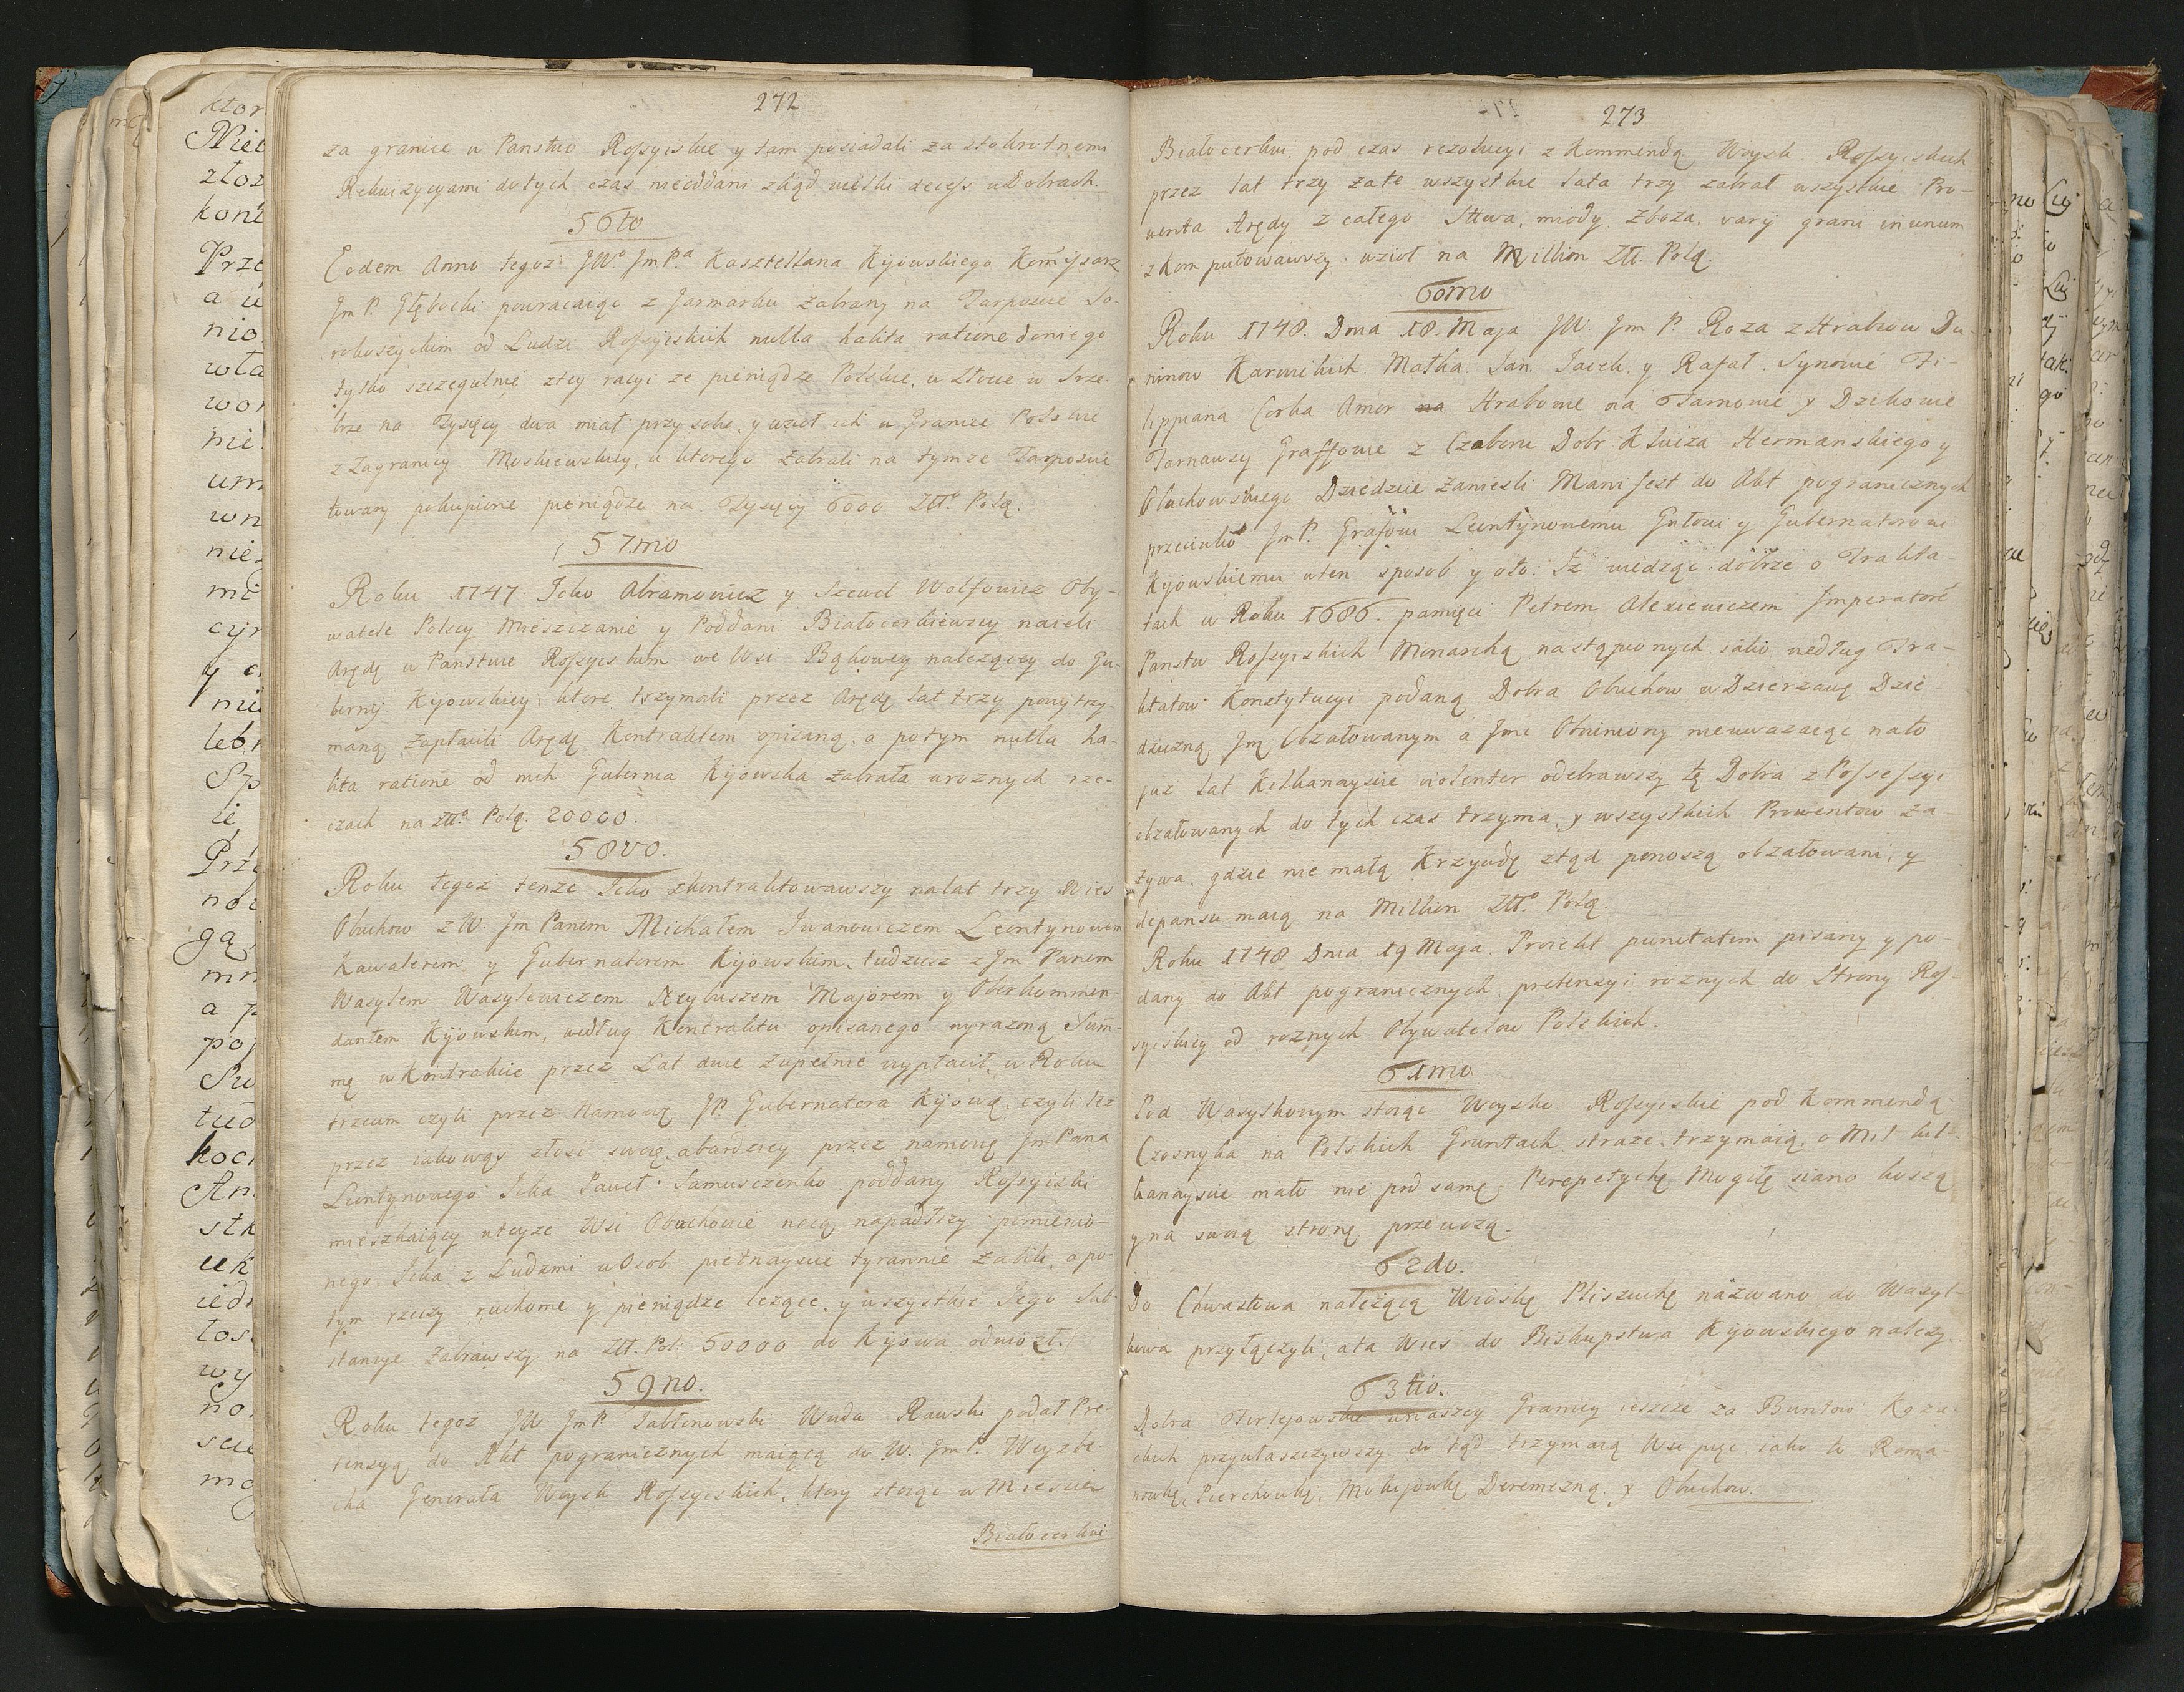 272
za granice w Panstwo Rossyiskie y tam posiadali za stokrotnemi
Rekwizycyami do tych czas nieoddani zkąd wielki decess w Dobrach.
56to
Eodem Anno tegoz JW. JmPa. Kasztellana Kijowskiego Kommissarz
Jm P. Głębocki powracaiąc z Jarmarku zabrany na Tarposcie So-
rokoszyckim od Ludzi Rossyiskich nulla habita ratione do niego
tylko szczegulnie z tey racyi ze pieniądze Polskie, w Złocie w Sre-
brze na Tysięcy dwa miał przy sobie, y wzioł ich w Granice Polskie
z Zagranicy Moskiewskiey, u ktorego zabrali na tymze Tarposcie
towary pokupione pieniądze na Tysięcy 6000 Złł. Polą.
57.mo
Roku 1747 Icko Abramowicz y Szewel Wolfowicz Oby-
watele Polscy Mieszczanie y Poddani Białocerkiewscy naieli
Arędę w Panstwie Rossyiskim we Wsi Bąkowey nalezącey do Gu-
bernij Kijowskiey, ktore trzymali przez Arędę lat trzy powytrzy-
maną zapłacili Arędę Kontraktem opisaną, a potym nulla ha-
bita ratione od nich Gubernia Kijowska zabrała w roznych rze-
czach na Złł. Polą. 20000.
58vo.
Roku tegoz tenze Icko zkontraktowawszy na lat trzy Wies
Obuchow z W Jm Panem Michałem Iwanowiczem Leontynowem
Kawalerem y Gubernatorem Kijowskim, tudziesz z Jm Panem
Wasylem Wasylewiczem Neybuszem Majorem y Oberkommen-
dantem Kijowskim, według Kontraktu opisanego wyrazoną Sum-
mę w Kontrakcie przez Lat dwie zupełnie wypłacił, w Roku
trzecim czyli przez Namowę JP. Gubernatora Kijową czyli tez
przez iakowąs złosc swoię, a bardziey przez namowę Jm Pana
Leontynowego Icka Paweł Samusczenko poddany Rossyiski
mieszkaiący w teyze Wsi Obuchowie nocą, napadłszy pomienio-
nego Icka z Ludzmi w Osob pietnayscie tyrannie zabili, a po-
tym rzeczy ruchome y pieniądze lezące, y wszystkie Jego Sub-
stancye zabrawszy na Złł. Pol: 50000 do Kijowa odwiozł.
59no.
Roku tegoz JW JmP Jabłonowski Wwda Rawski podał Pre-
tensyą do Akt pogranicznych maiącą do W. JmP. Weyzbe-
cka Generała Woysk Rossyiskich, ktory stoiąc w Miescie
Białocerkwi

273
Białocerkwi pod czas rezolucyi z Kommendą Woysk Rossyiskich
przez lat trzy za te wszystkie lata trzy zabrał wszystkie Pro-
wenta Arędy z całego Sttwa, miody, zboza, varij grani in unum
z kom putowawszy wzioł na Million Złł. Polą.
60mo
Roku 1748. Dnia 18. Maja JW. Jm P. Roza z Hrabiow Du-
ninow Karwickich Matka. Jan. Jacek. y Rafał. Synowie Fi-
lippiana Corka Amor Hrabowie na Tarnowie y Dzikowie
Tarnawscy Graffowie z Czaboru Dobr Kluiza Hermanskiego y
Obuchowskiego Dziedzice zaniesli Manifest do Akt pogranicznych
przeciwko Jm P. Grafowi Leontynowemu Gułowi y Gubernatorowi
Kijowskiemu w ten sposob y oto: Iz wiedząc dobrze o Trakta-
tach w Roku 1686. pamięci Petrem Alexiewiczem Imperatore
Panstw Rossyiskich Monarchą nastąpionych iako według Tra-
ktatow Konstytucyi podaną Dobra Obuchow w Dzierzawę Dzie-
dziczną Jm Obzałowanym a Jmc Obwiniony nieuwazaiąc na to
juz lat kilkanayscie violenter odebrawszy tę Dobra z Possessyi
obzałowanych do tych czas trzyma, y wszystkich Prowentow za-
zywa, gdzie nie małą Krzywdę ztąd ponoszą obzałowani, y
depansu maią na Million Złł. Polą.
Roku 1748 Dnia 19 Maja. Proiekt punctatim pisany y po-
dany do Akt pogranicznych pretensyi roznych do Strony Ros-
syiskiey od roznych Obywatelow Polskich.
61mo
Pod Wasylkowym stoiąc Woysko Rossyiskie pod Kommendą
Czosnyka na Polskich Gruntach straze trzymaią, o Mil kil-
kanayscie mało nie pod samę Perepetychę Mogiłę siano koszą
y na swoią stronę przewozą.
62do.
Do Chwastowa nalezącą Wioskę Pliszuchę nazwano do Wasyl-
kowa przyłączyli, a ta Wies do Biskupstwa Kijowskiego nalezy.
63tio.
Dobra w naszey Granicy ieszcze za Buntow Koza-
ckich przywłaszczywszy do tąd trzymaią Wsi pięc iako to Roma-
nowkę, Pierehowkę, Mokijowkę Deremezną. y Obuchow.